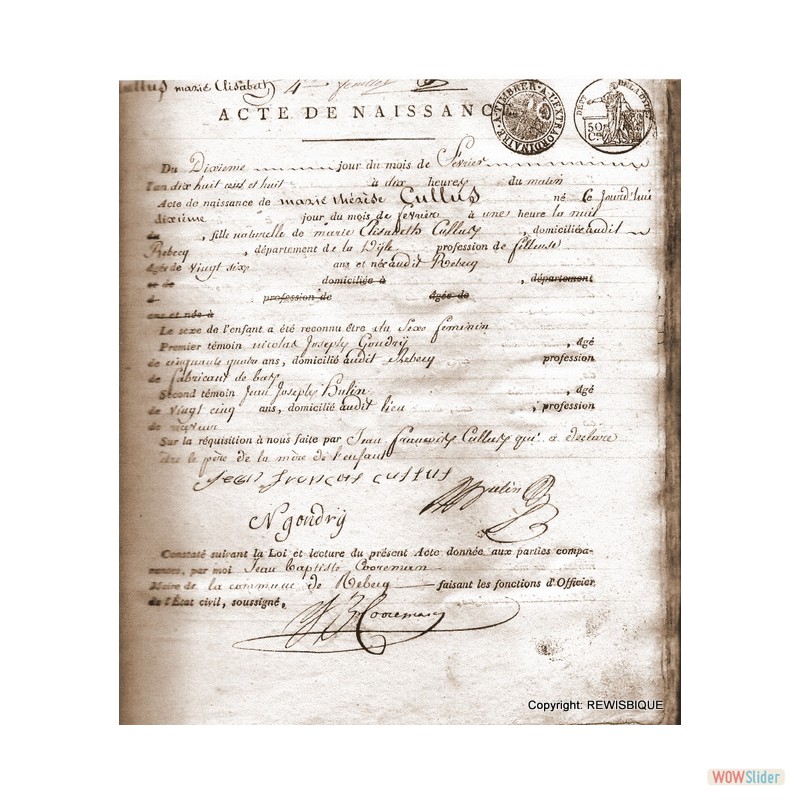 Cullus marie Elisabeth 4me feuillet
ACTE DE NAISSANC
A TIMBRER A L'EXTRAORDINAIRE
50 Cs
Du Dixieme jour du mois de Fevrier
l'an dix huit cent et huit à dix heures du matin
Acte de naissance de marie thérèse Cullus né Ce Jourd'hui
dixième jour du mois de fevrier à une heure la nuit
de , fille naturelle de marie Elisabeth Cullus , domiciliée audit
Rebecq , département de la Dyle profession de fileuse
âgée de vingt six ans et née audit Rebecq
et de domicilié à , département
à profession de âgée de
ans et née à
Le sexe de l'enfant a été reconnu être du Sexe feminin
Premier témoin nicolas Joseph Goudry , âgé
de cinquante quatre ans, domicilié audit Rebecq profession
de fabricant de bas
Second témoin Jean Joseph Hulin , âgé
de vingt cinq ans, domicilié audit lieu , profession
de
Sur la réquisition à nous faite par Jean francois Cullus qui a declaré
être le père de la mère de l'enfant
Jean françois cullus
Hulin
N goudrÿ
Constaté suivant la Loi et lecture du présent Acte donnée aux parties compa-
rantes, par moi Jean Baptiste Cooremans
Maire de la commune de Rebecq faisant les fonctions d'Officier
de l'État civil, soussigné,
JB Cooremans
Copyright: REWISBIQUE
WOWSlider